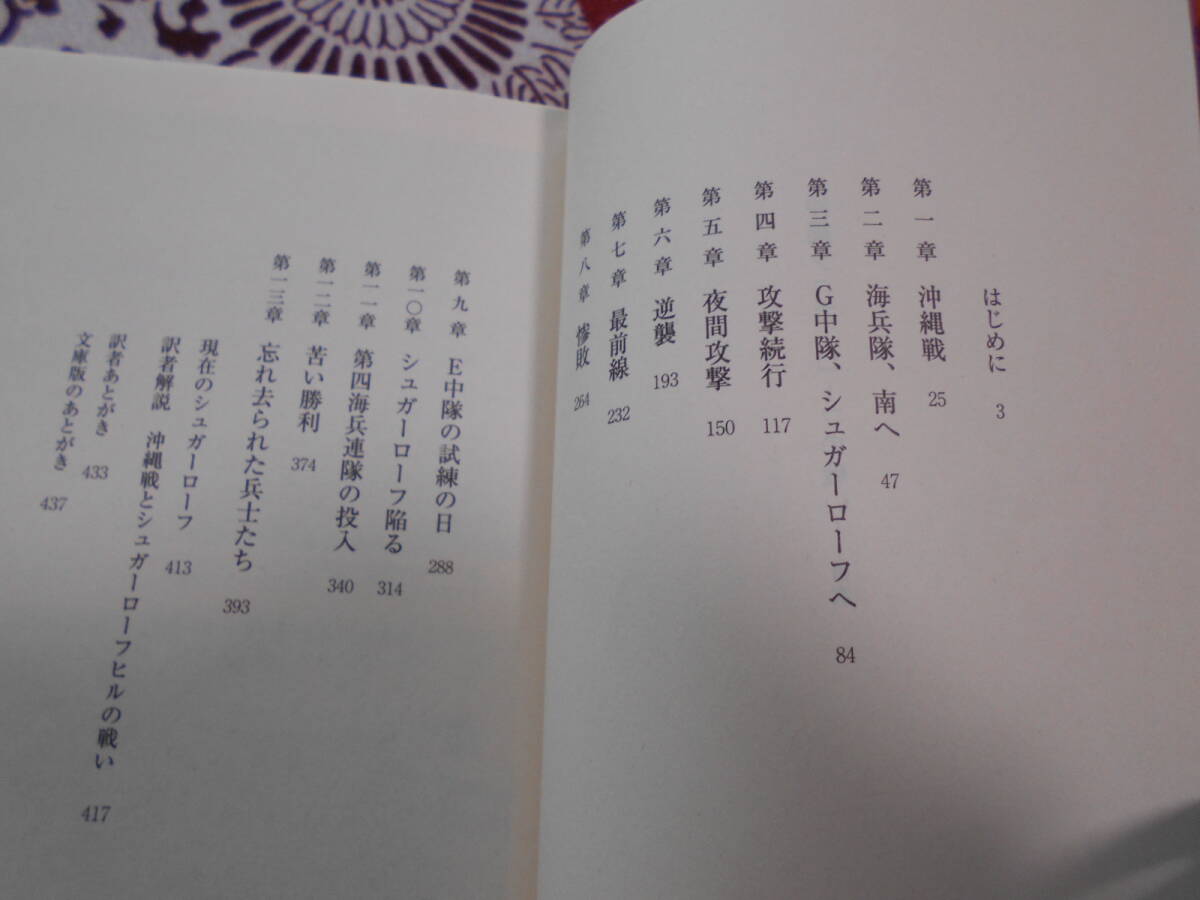 はじめに 3
第一章 沖縄戦 25
第二章 海兵隊、南へ 47
第三章 G中隊、シュガーローフへ 84
第四章 攻撃続行 117
第五章 夜間攻撃 150
第六章 逆襲 193
第七章 最前線 232
第八章 惨敗 264
第九章 E中隊の試練の日 288
第一〇章 シュガーローフ陥る 314
第一一章 第四海兵連隊の投入 340
第一二章 苦い勝利 374
第一三章 忘れ去られた兵士たち 393
現在のシュガーローフ 413
訳者解説 沖縄戦とシュガーローフヒルの戦い 417
訳者あとがき 433
文庫版のあとがき 437